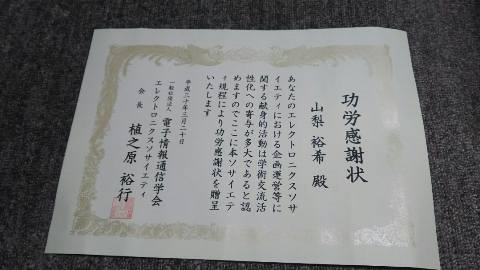 功労感謝状
山梨 裕希 殿
あなたのエレクトロニクスソサ
イエティにおける企画運営等に
関する献身的活動は学術交流活
性化への寄与が多大であると認
めますのでここに本ソサイエテ
ィ規程により功労感謝状を贈呈
いたします
平成三十年三月二十日
一般社団法人 電子情報通信学会
エレクトロニクスソサイエティ
会長 植之原 裕行